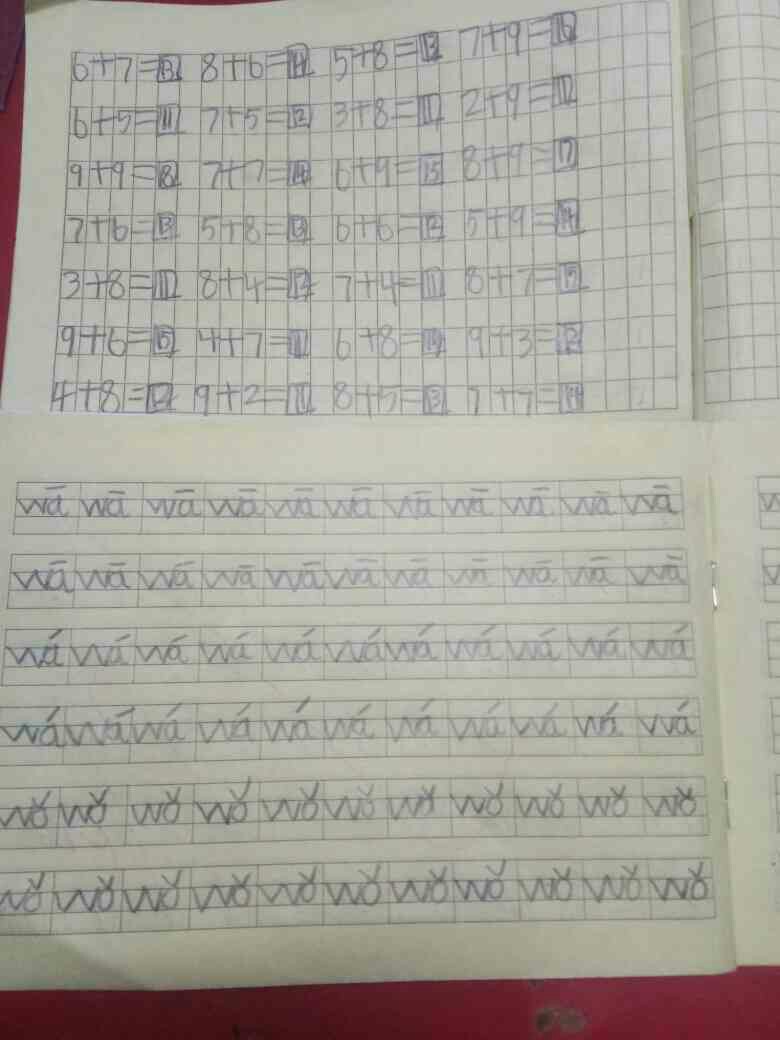 6+7=13 8+6=14 5+8=13 7+9=16
6+5=11 7+5=12 3+8=11 2+9=11
9+9=18 7+7=14 6+9=15 8+9=17
7+6=13 5+8=13 6+6=12 5+9=14
3+8=11 8+4=12 7+4=11 8+7=15
9+6=15 4+7=11 6+8=14 9+3=12
4+8=12 9+2=11 8+5=13 7+7=14
wā wā wā wā wā wā wā wā wā wā wā
wā wā wā wā wā wā wā wā wā wā wā
wá wá wá wá wá wá wá wá wá wá wá
wá wá wá wá wá wá wá wá wá wá wá
wǒ wǒ wǒ wǒ wǒ wǒ wǒ wǒ wǒ wǒ wǒ
wǒ wǒ wǒ wǒ wǒ wǒ wǒ wǒ wǒ wǒ wǒ